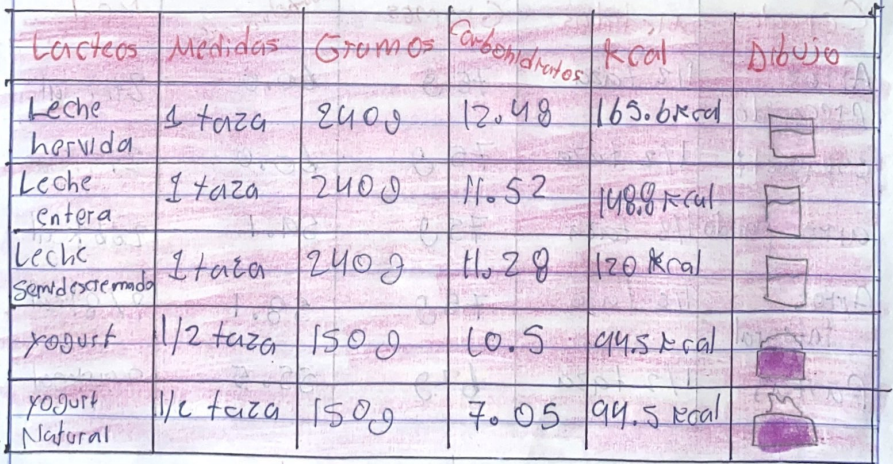 Lacteos Medidas Gramos Carbohidratos Kcal Dibujo
Leche hervida 1 taza 240g 12.48 165.6 kcal
Leche entera 1 taza 240g 11.52 148.8 kcal
Leche semidescremada 1 taza 240g 11.28 120 kcal
yogurt 1/2 taza 150g 10.5 94.5 kcal
yogurt Natural 1/2 taza 150g 7.05 94.5 kcal